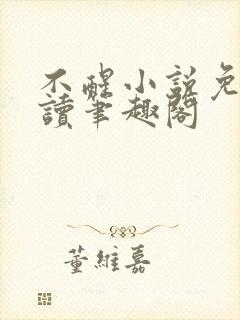 不醒小説免
讀筆趣閣
董維嘉